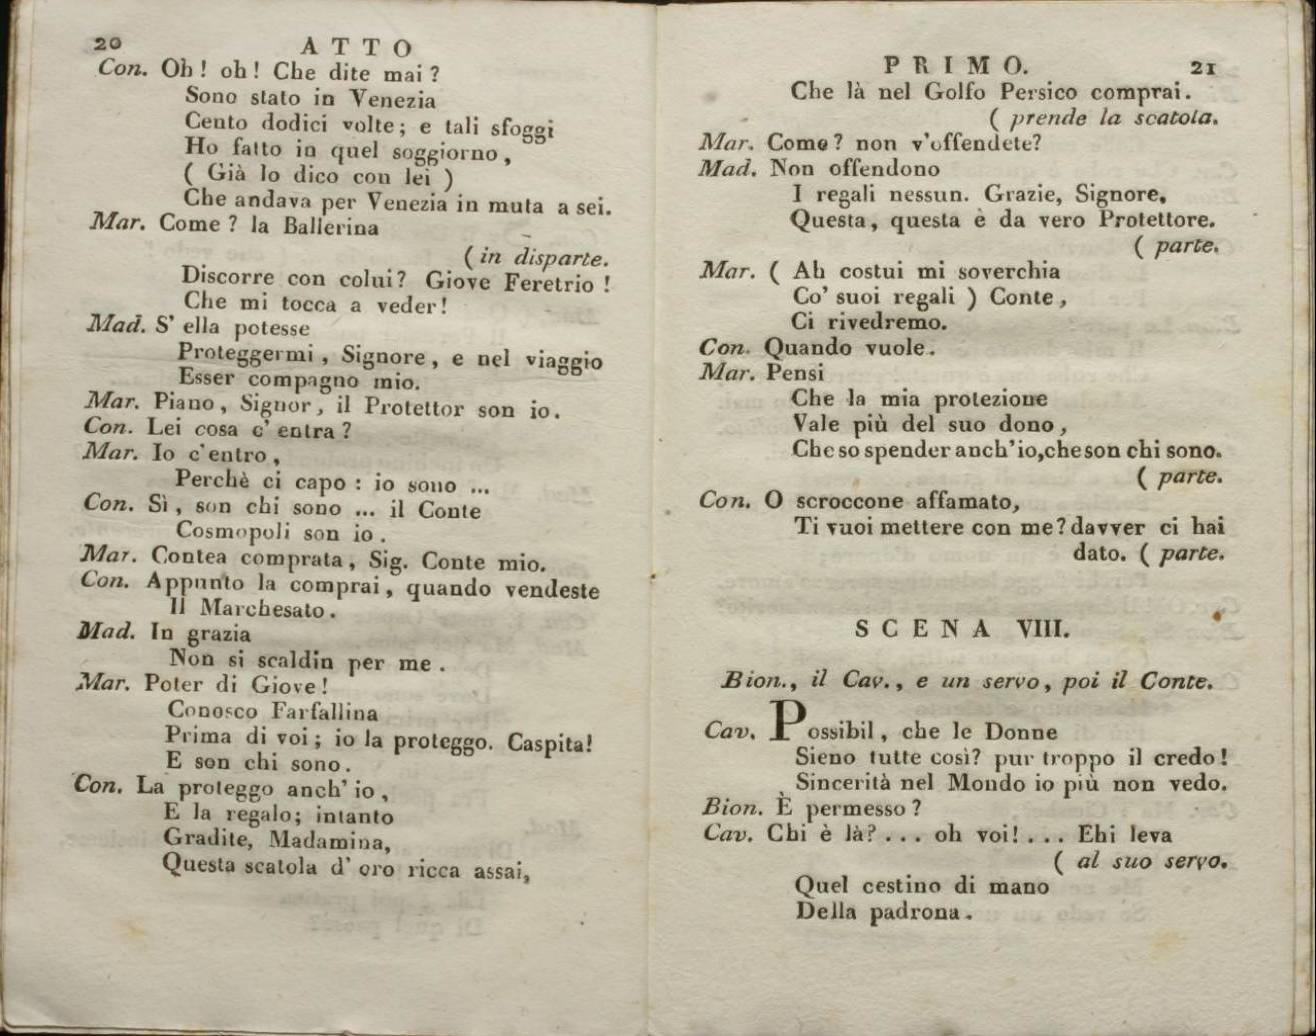 20 ATTO
Con. Oh! oh! Che dite mai?
Sono stato in Venezia
Cento dodici volte; e tali sfoggi
Ho fatto in quel soggiorno,
( Già lo dico con lei )
Che andava per Venezia in muta a sei.
Mar. Come? la Ballerina
( in disparte.
Discorre con colui? Giove Feretrio!
Che mi tocca a veder!
Mad. S' ella potesse
Proteggermi, Signore, e nel viaggio
Esser compagno mio.
Mar. Piano, Signor, il Protettor son io.
Con. Lei cosa c' entra?
Mar. Io c'entro,
Perchè ci capo: io sono ...
Con. Sì, son chi sono ... il Conte
Cosmopoli son io.
Mar. Contea comprata, Sig. Conte mio.
Con. Appunto la comprai, quando vendeste
Il Marchesato.
Mad. In grazia
Non si scaldin per me.
Mar. Poter di Giove!
Conosco Farfallina
Prima di voi; io la proteggo. Caspita!
E son chi sono.
Con. La proteggo anch' io,
E la regalo; intanto
Gradite, Madamina,
Questa scatola d' oro ricca assai,
PRIMO. 21
Che là nel Golfo Persico comprai.
( prende la scatola.
Mar. Come? non v'offendete?
Mad. Non offendono
I regali nessun. Grazie, Signore.
Questa, questa è da vero Protettore.
( parte.
Mar. ( Ah costui mi soverchia
Co' suoi regali ) Conte,
Ci rivedremo.
Con. Quando vuole.
Mar. Pensi
Che la mia protezione
Vale più del suo dono,
Che so spender anch'io, che son chi sono.
( parte.
Con. O scroccone affamato,
Ti vuoi mettere con me? davver ci hai
dato. ( parte.
SCENA VIII.
Bion., il Cav., e un servo, poi il Conte.
Cav. Possibil, che le Donne
Sieno tutte così? pur troppo il credo!
Sincerità nel Mondo io più non vedo.
Bion. È permesso?
Cav. Chi è là?... oh voi!... Ehi leva
( al suo servo.
Quel cestino di mano
Della padrona.